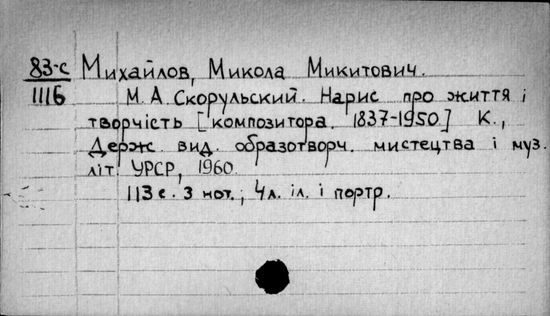 83-с Михайлов, Микола Микитович.
1116 М. А. Скорульский. Нарис про життя і
творчість [композитора. 1837-1950] К.,
Держ. вид. образотворч. мистецтва і муз.
літ. УРСР, 1960.
113 с. з нот.; 4 л. іл. і портр.